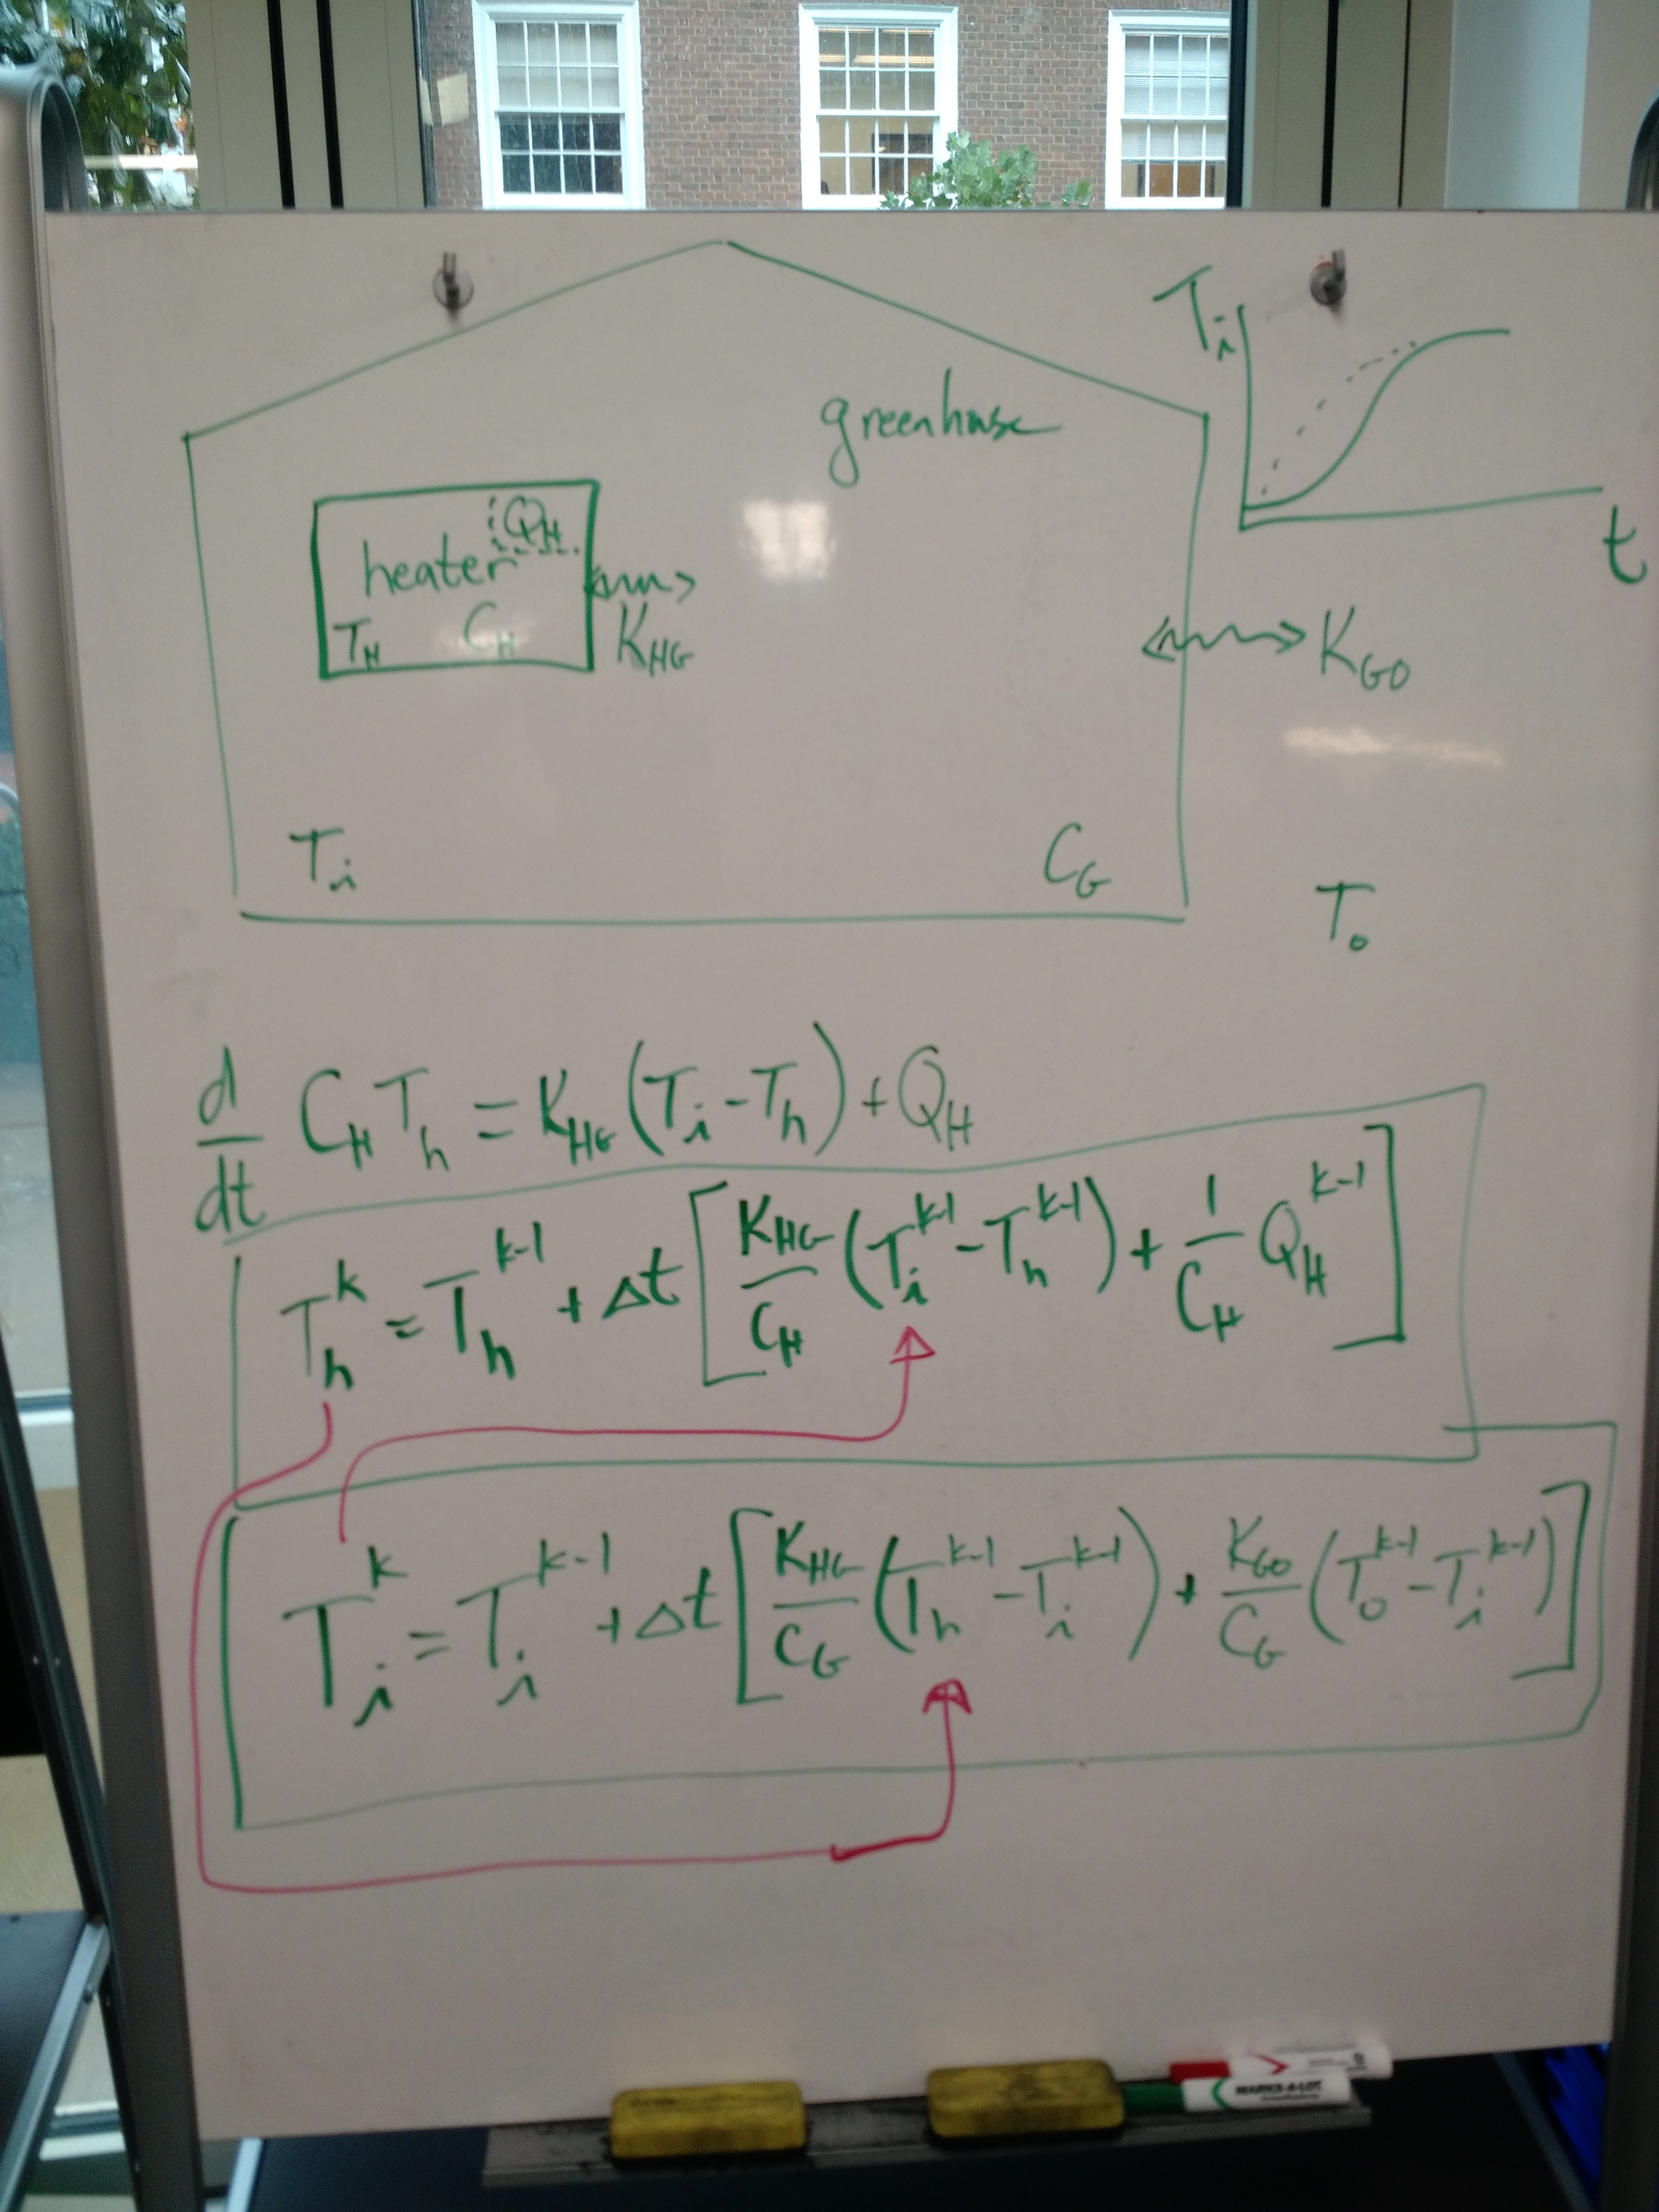 T_i
greenhouse
Q_H
heater
t
T_H C_H K_HG
K_GO
T_i C_G
T_o
d/dt C_H T_h = K_HG (T_i - T_h) + Q_H
T_h^k = T_h^{k-1} + Δt [ K_HG/C_H (T_i^{k-1} - T_h^{k-1}) + 1/C_H Q_H^{k-1} ]
T_i^k = T_i^{k-1} + Δt [ K_HG/C_G (T_h^{k-1} - T_i^{k-1}) + K_GO/C_G (T_o^{k-1} - T_i^{k-1}) ]
MARKS-A-LOT